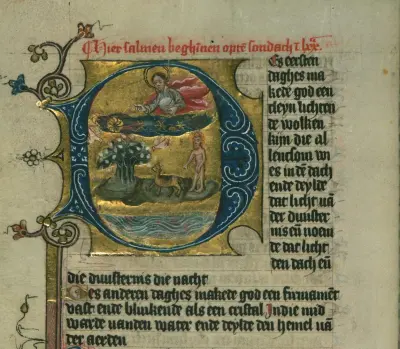 Hier salmen beghinen opten sondach t lxx.
Des eersten
daghes ma
kede god een
cleyn lichten
de wolken
kijn die al
lencsom wi
es in dē dach
ende deylde
dat licht vā
der duister
nis eñ noem
de dat licht
den dach eñ
die duisternis die nacht
Des anderen daghes makede god een firmament
vast ende blinkende als een cristal In die mid
warde vanden water ende deylde den hemel vā
der aerden